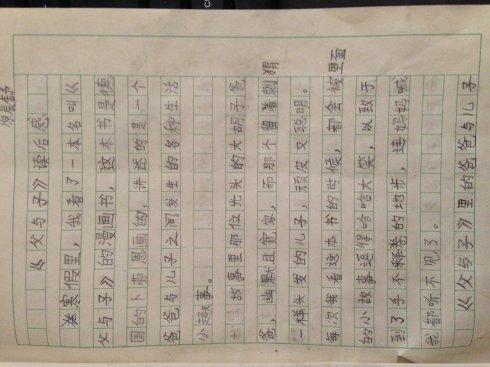 《父与子》读后感
寒假里，我看了一本名叫《
父与子》的漫画书，这本书是德
国的卜劳恩画的，讲述的是一个
爸爸与儿子之间发生的各种生活
小趣事。
故事里那位光头的大胡子爸
爸，幽默且宽容，而那个留着刺猬
一样头发的儿子，顽皮又聪明。
每次我看这本书的时候，都会被里面
的小故事逗得哈哈大笑，以致于
到了手不释卷的地步，连妈妈喊
我都听不见了。
《父与子》里的爸爸与儿子